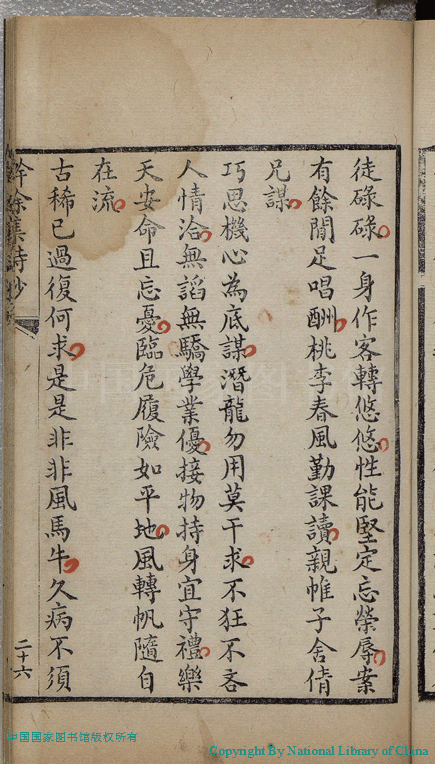 徒碌碌一身作客轉悠悠性能堅定忘榮辱案
有餘閒足唱酬桃李春風勤課讀親帷子舍倩
兄謀
巧思機心為底謀潛龍勿用莫干求不狂不吝
人情洽無諂無驕學業優接物持身宜守禮樂
天安命且忘憂臨危履險如平地風轉帆隨自
在流
古稀已過復何求是是非非風馬牛久病不須
餘集詩鈔
二十六
中国国家图书馆版权所有
Copyright By National Library of China